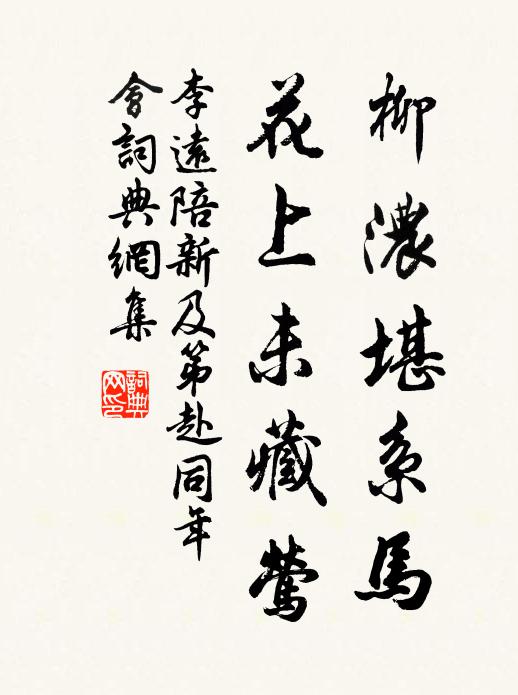 柳濃堪系馬
花上未藏鶯
李遠陪新及第赴同年
會詞典網集
詞典
网印